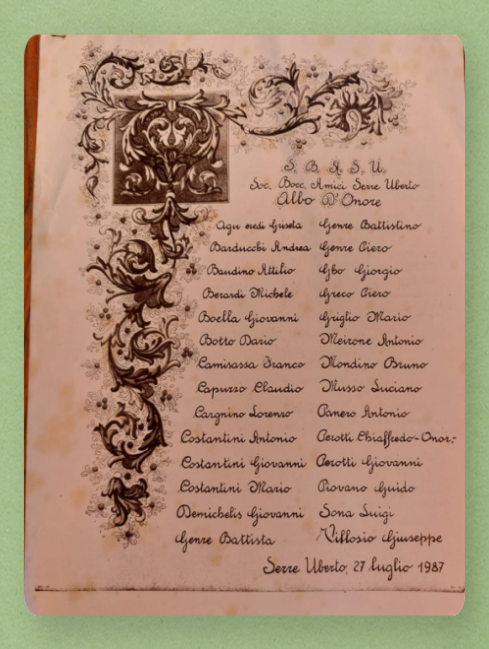 S. B. A. S. U.
Soc. Bocc. Amici Serre Uberto
Albo D'Onore
Agù eredi Griseta Genre Battistino
Barducchi Andrea Genre Piero
Baudino Attilio Gbo Giorgio
Berardi Michele Greco Piero
Boella Giovanni Griglio Mario
Botto Dario Meirone Antonio
Camisassa Franco Mondino Bruno
Capuzzo Claudio Musso Luciano
Cargnino Lorenzo Panero Antonio
Costantini Antonio Perotti Chiaffredo-Onor:
Costantini Giovanni Perotti Giovanni
Costantini Mario Piovano Guido
Demichelis Giovanni Sona Luigi
Genre Battista Villosio Giuseppe
Serre Uberto, 27 luglio 1987